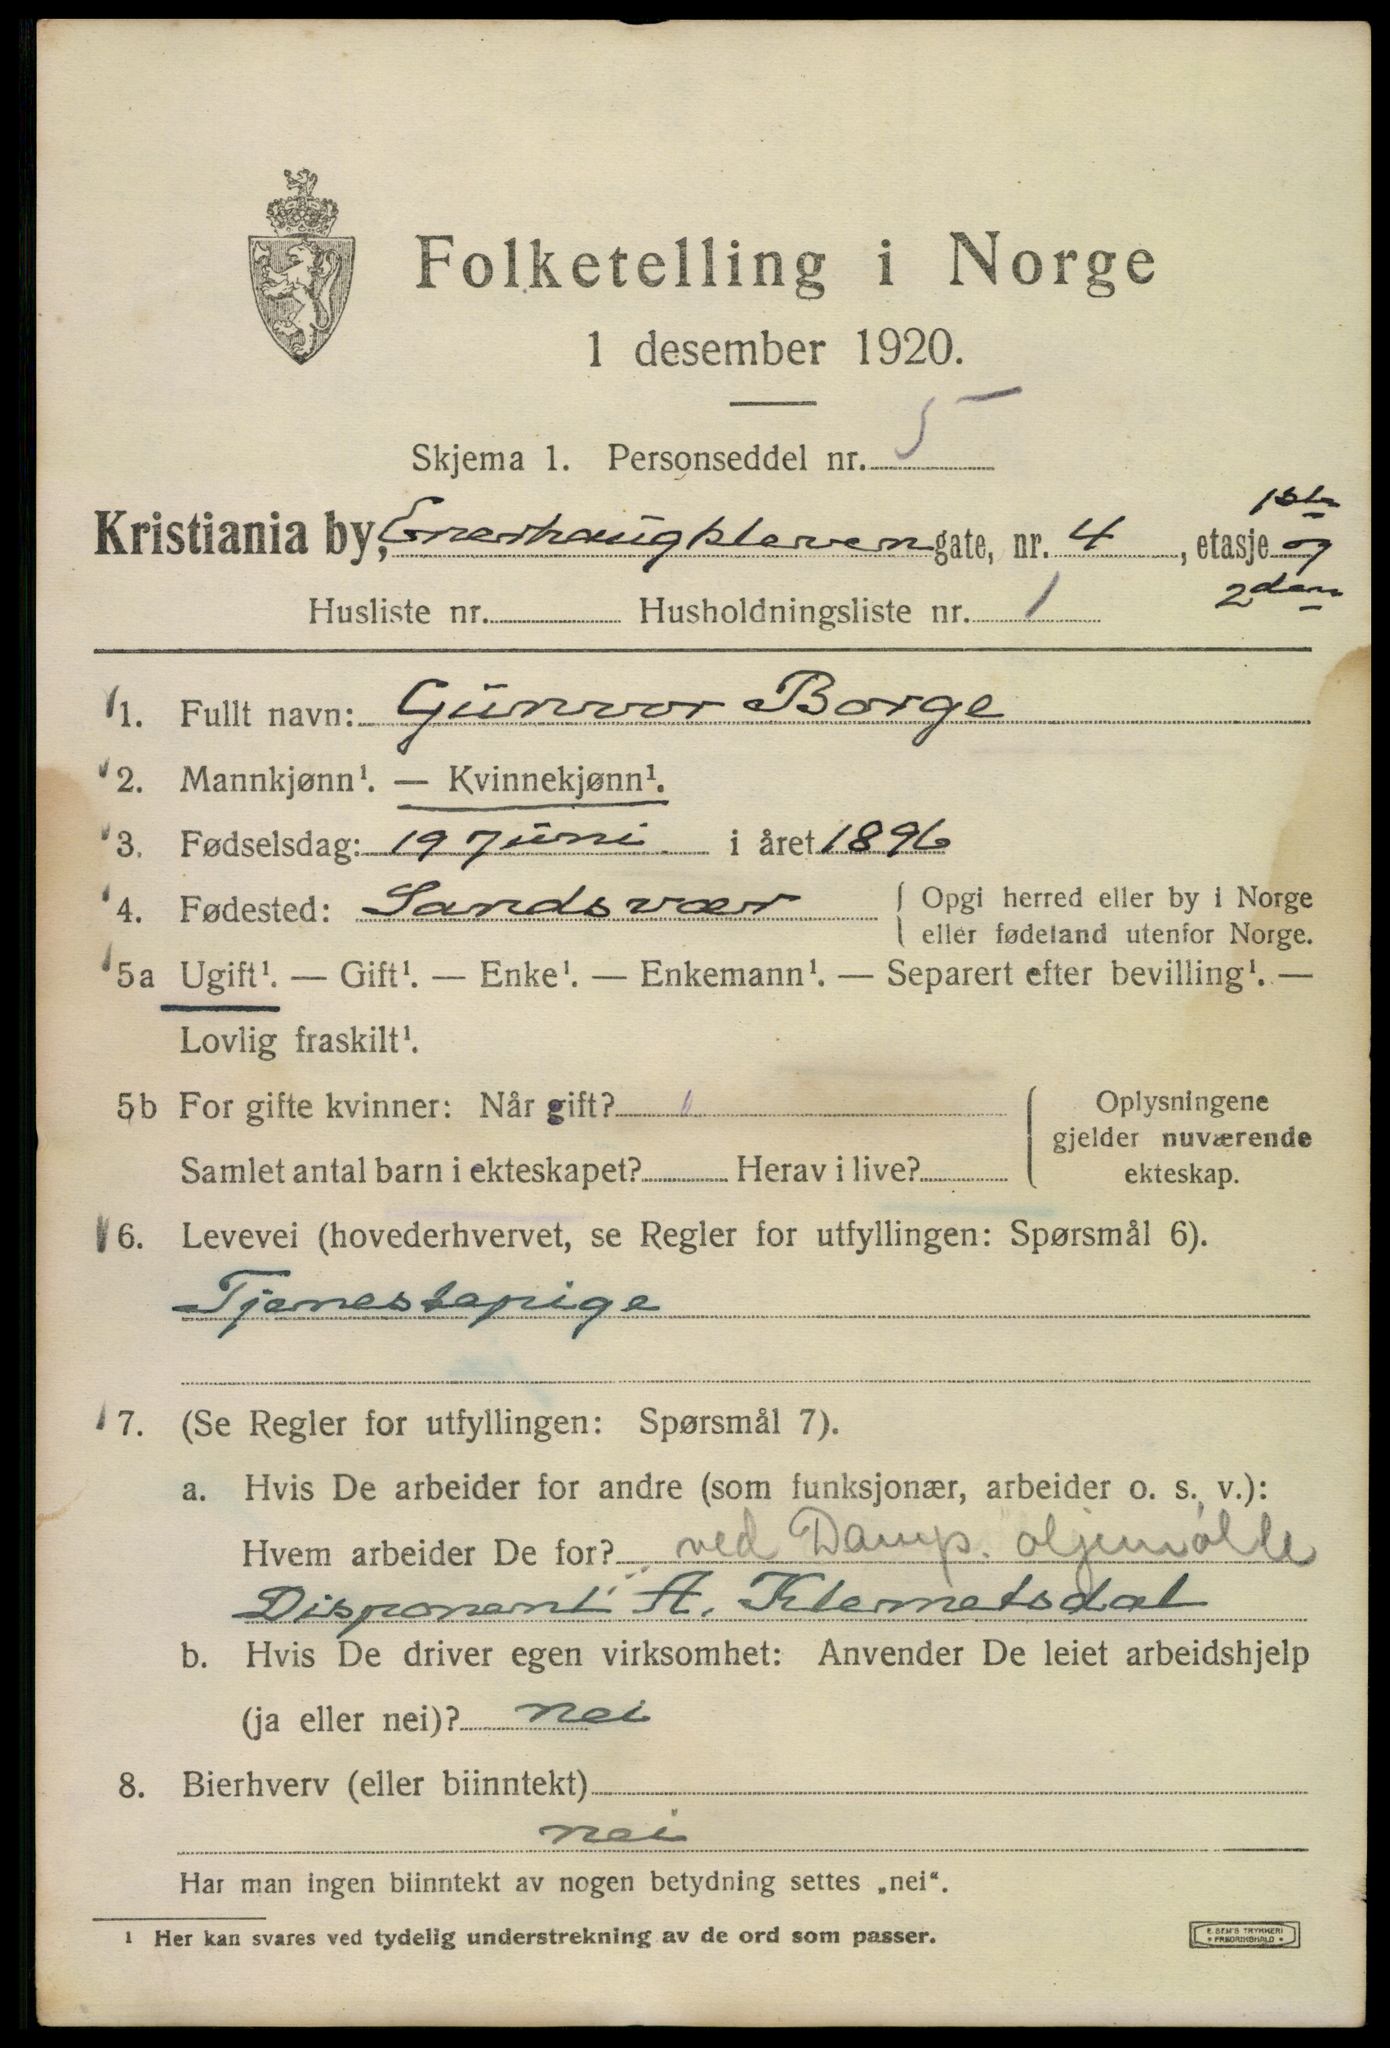 Folketelling i Norge
1 desember 1920.
Skjema 1. Personseddel nr. 5
Kristiania by, Enerhaugkleven gate, nr. 4, etasje 1ste og 2den
Husliste nr. Husholdningsliste nr. 1
1. Fullt navn: Gunvor Borge
2. Mannkjønn¹. — Kvinnekjønn¹.
3. Fødselsdag: 19 Juni i året 1896
4. Fødested: Sandsvær { Opgi herred eller by i Norge
eller fødeland utenfor Norge.
5a Ugift¹. — Gift¹. — Enke¹. — Enkemann¹. — Separert efter bevilling¹. —
Lovlig fraskilt¹.
5b For gifte kvinner: Når gift? { Oplysningene
gjelder nuværende
Samlet antal barn i ekteskapet? Herav i live? ekteskap.
6. Levevei (hovederhvervet, se Regler for utfyllingen: Spørsmål 6).
Tjenestepige
7. (Se Regler for utfyllingen: Spørsmål 7).
a. Hvis De arbeider for andre (som funksjonær, arbeider o. s. v.):
Hvem arbeider De for? ved Damp. oljemølle
Disponent A. Klemetsdal
b. Hvis De driver egen virksomhet: Anvender De leiet arbeidshjelp
(ja eller nei)? nei
8. Bierhverv (eller biinntekt)
nei
Har man ingen biinntekt av nogen betydning settes „nei“.
¹ Her kan svares ved tydelig understrekning av de ord som passer.
E. SEM'S TRYKKERI
* FREDRIKSHALD *